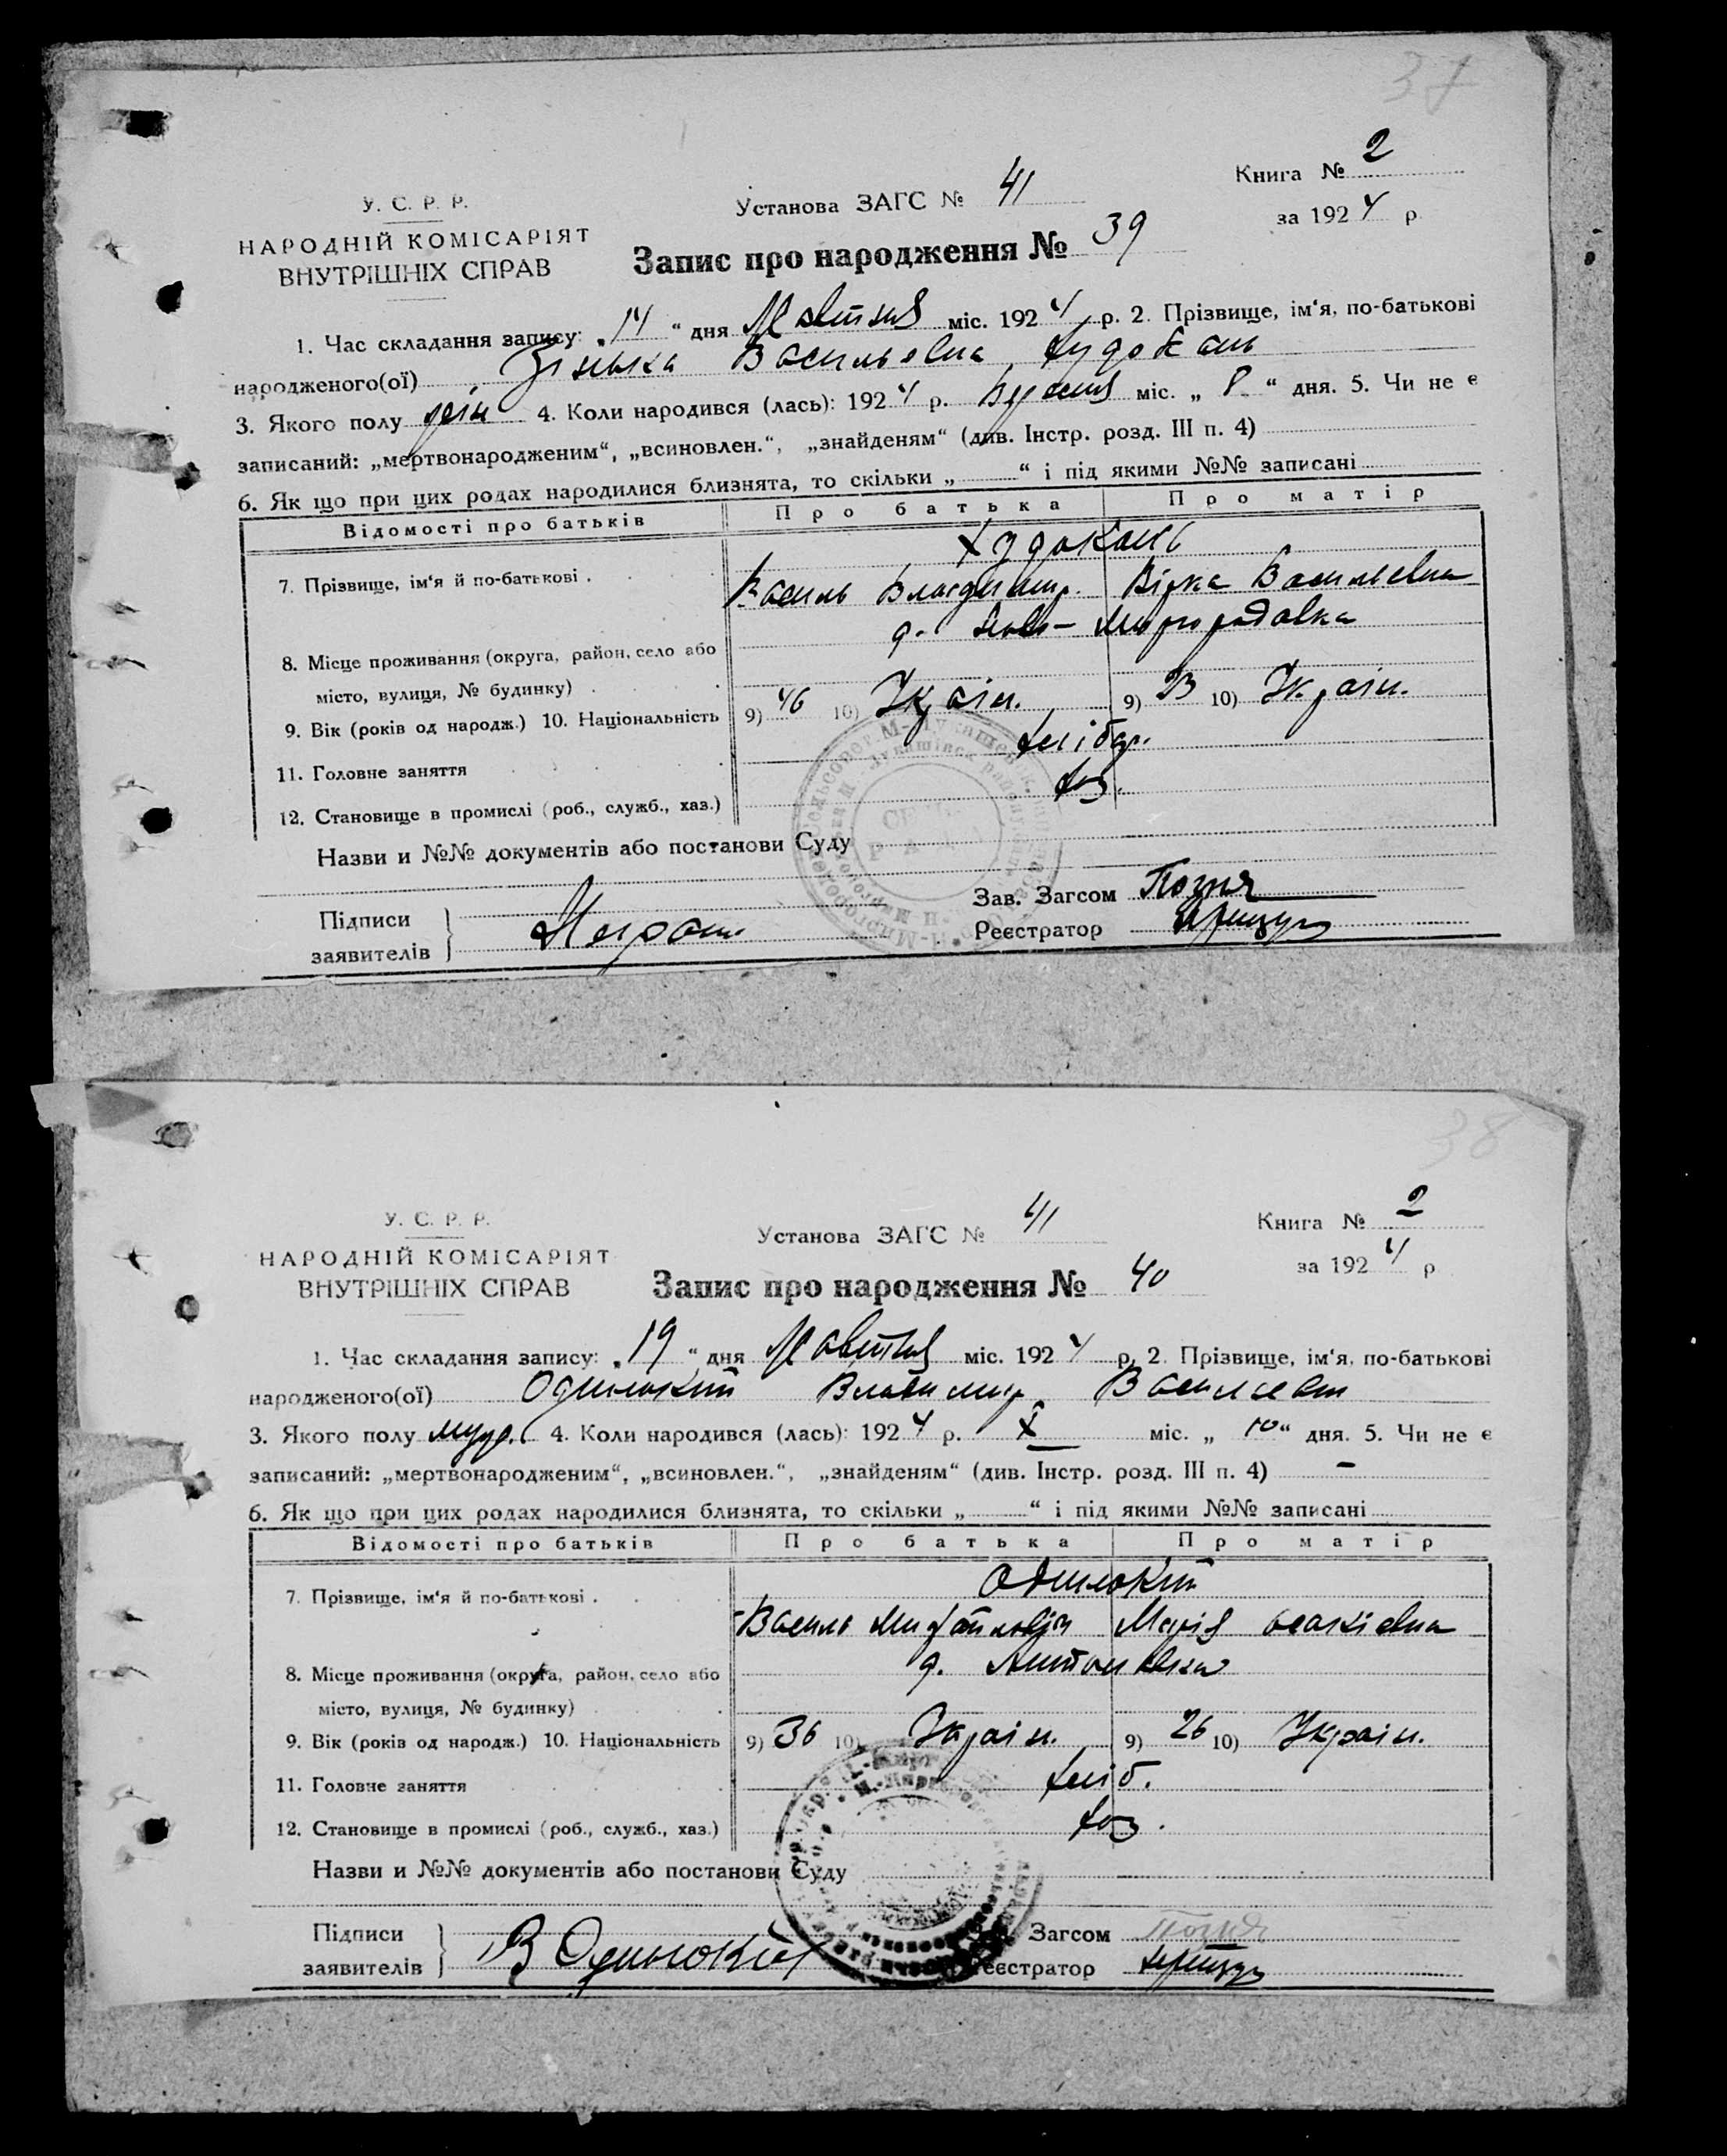 37
Книга № 2
У. С. Р. Р. Установа ЗАГС № 41
за 1924 р.
НАРОДНІЙ КОМІСАРІЯТ
ВНУТРІШНІХ СПРАВ
Запис про народження № 39
1. Час складання запису: „14“ дня Жовтня міс. 1924 р. 2. Прізвище, ім‘я, по-батькові
народженого(ої) Васильевна
3. Якого полу жін 4. Коли народився (лась): 1924 р. міс. „8“ дня. 5. Чи не є
записаний: „мертвонародженим“, „всиновлен.“, „знайденям“ (див. Інстр. розд. III п. 4)
6. Як що при цих родах народилися близнята, то скільки „ “ і під якими №№ записані
Відомості про батьків Про батька Про матір
7. Прізвище, ім‘я й по-батькові . Худоконь
Василь Владимир. Вірка Васильевна
8. Місце проживання (округа, район, село або д. Ново-Миргородовка
місто, вулиця, № будинку)
9. Вік (років од народж.) 10. Національність 9) 46 10) Украін. 9) 23 10) Украін.
11. Головне заняття хлібор.
12. Становище в промислі (роб., служб., хаз.) хоз.
Назви и №№ документів або постанови Суду
Підписи
заявителів
Зав. Загсом
Реєстратор
38
Книга № 2
У. С. Р. Р. Установа ЗАГС № 41
за 1924 р
НАРОДНІЙ КОМІСАРІЯТ
ВНУТРІШНІХ СПРАВ
Запис про народження № 40
1. Час складання запису: „19“ дня Жовтня міс. 1924 р. 2. Прізвище, ім‘я, по-батькові
народженого(ої) Одинокий Владимир
3. Якого полу муж. 4. Коли народився (лась): 1924 р. X міс. „10“ дня. 5. Чи не є
записаний: „мертвонародженим“, „всиновлен.“, „знайденям“ (див. Інстр. розд. III п. 4) –
6. Як що при цих родах народилися близнята, то скільки „ “ і під якими №№ записані
Відомості про батьків Про батька Про матір
7. Прізвище, ім‘я й по-батькові . Одинокий
Василь Марія
8. Місце проживання (округа, район, село або д. Антоновка
місто, вулиця, № будинку)
9. Вік (років од народж.) 10. Національність 9) 36 10) Украін. 9) 26 10) Украін.
11. Головне заняття хліб.
12. Становище в промислі (роб., служб., хаз.) хоз.
Назви и №№ документів або постанови Суду
Підписи
заявителів В Одинокий
Загсом
Реєстратор